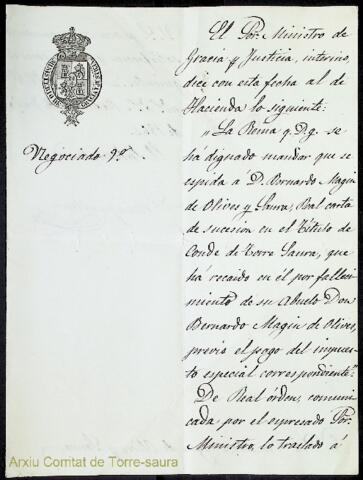 El Sor. Ministro de
Gracia y Justicia, interino,
dice con esta fecha al de
Hacienda lo siguiente:
"La Reina q. D. g. se
ha dignado mandar que se
espida á D. Bernardo Magin
de Olives y Saura, Real carta
de sucesion en el Título de
Conde de Torre Saura, que
há recaido en él por falleci-
miento de su Abuelo Don
Bernardo Magin de Olives,
previo el pago del impues-
to especial correspondiente."
De Real órden, comuni-
cada por el espresado Sor.
Ministro, lo traslado á
Negociado 9º
Arxiu Comtat de Torre-saura